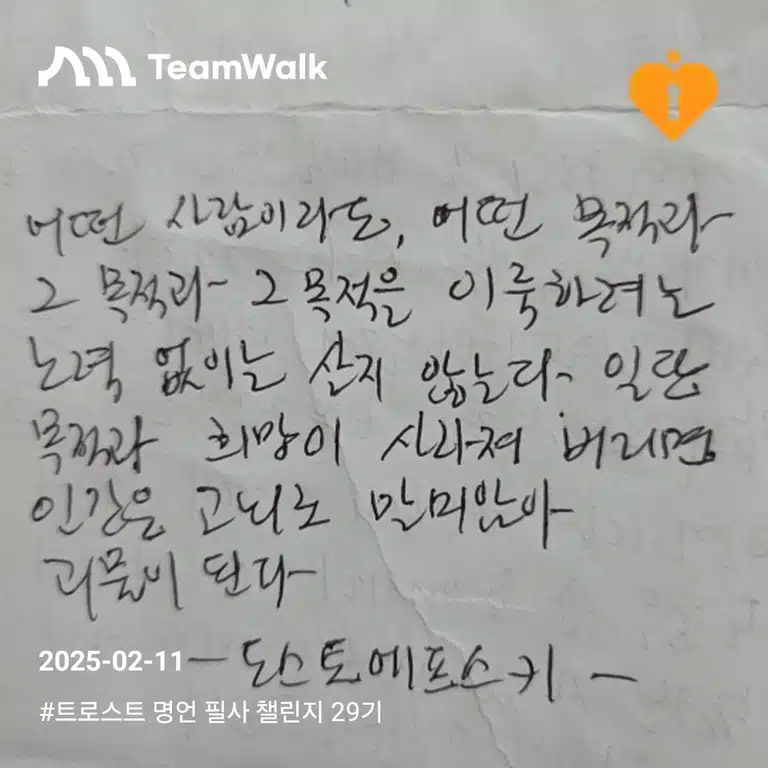 TeamWalk
어떤 사람이라도, 어떤 목적과
그 목적과 그 목적을 이룩하려는
노력 없이는 산지 않는다. 일단
목적과 희망이 사라져 버리면
인간은 고뇌로 말미암아
괴물이 된다
2025-02-11 - 도스토에프스키 -
#트로스트 명언 필사 챌린지 29기